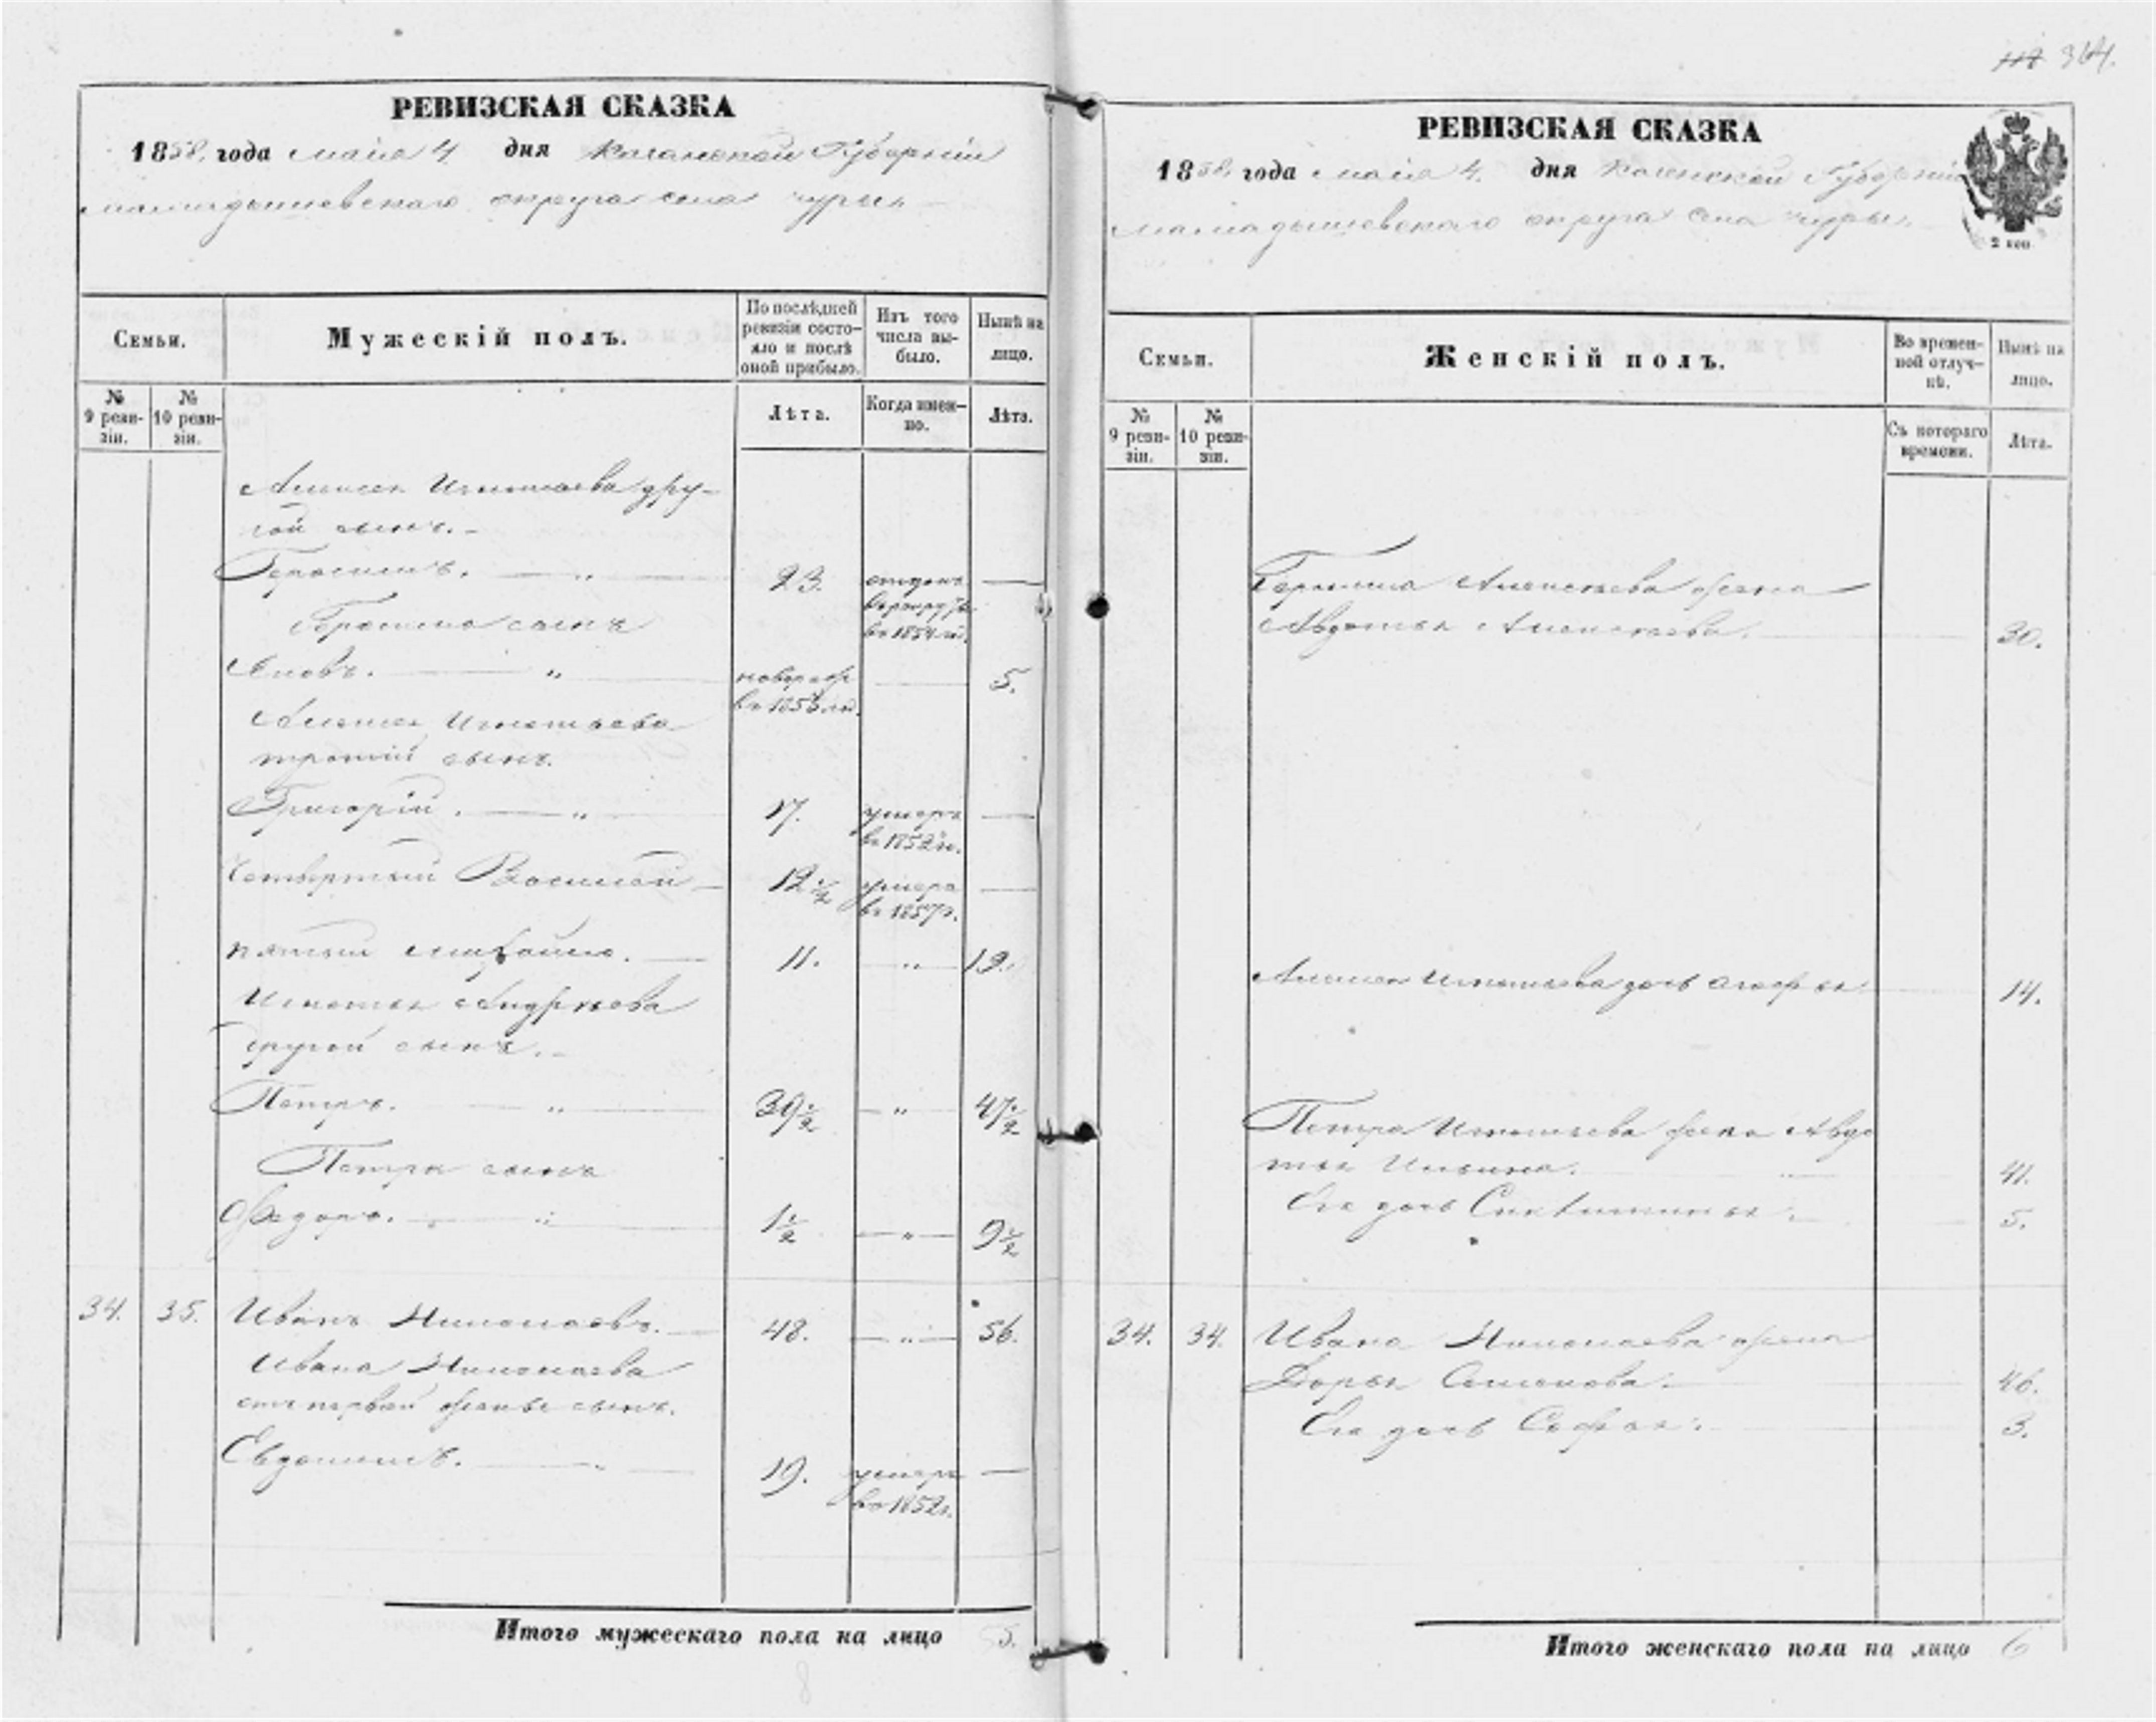 364.
РЕВИЗСКАЯ СКАЗКА
1858 года маія 4 дня Казанской Губерніи
мамадышевскаго округа села чуры
Семьи.
Мужескій полъ.
По послѣдней ревизіи состояло и послѣ оной прибыло.
Изъ того числа выбыло.
Нынѣ на лицо.
№ 9 ревизіи.
№ 10 ревизіи.
Лѣта.
Когда именно.
Лѣта.
Алексея Игнатьева дру-
гой сынъ.
Герасимъ. 23. отданъ —
в рекруты
в 1854 го.
Герасима сынъ
Яковъ. новорож 5.
в 1853 го.
Алексея Игнатьева
третій сынъ.
Григорій. 17. умеръ —
в 1852 го.
Четвертый Василей 12½ умеръ —
в 1857 г.
пятый Михайло. 11. " 19.
Игнатья Андреева
другой сынъ.
Петръ. 39½ " 47½
Петра сынъ
Федоръ. 1½ " 9½
34. 35. Иванъ Николаевъ. 48. " 56.
Ивана Николаева
отъ первой жены сынъ.
Евдокимъ. 19. умеръ —
в 1852 г.
Итого мужескаго пола на лицо 5.
8
РЕВИЗСКАЯ СКАЗКА
1858 года маія 4. дня Казанской Губерніи
мамадышевскаго округа села чуры.
2 коп
Семьи.
Женскій полъ.
Во временной отлучкѣ.
Нынѣ на лицо.
№ 9 ревизіи.
№ 10 ревизіи.
Съ котораго времени.
Лѣта.
Герасима Алексеева жена
Авдотья Алексеева. 30.
Алексея Игнатьева дочь 14.
Петра Игнатьева жена Авдо
тья Ильина. 41.
Ея дочь 5.
34. 34. Ивана Николаева жена
Дарья Семенова. 46.
Ея дочь Софья. 3.
Итого женскаго пола на лицо 6